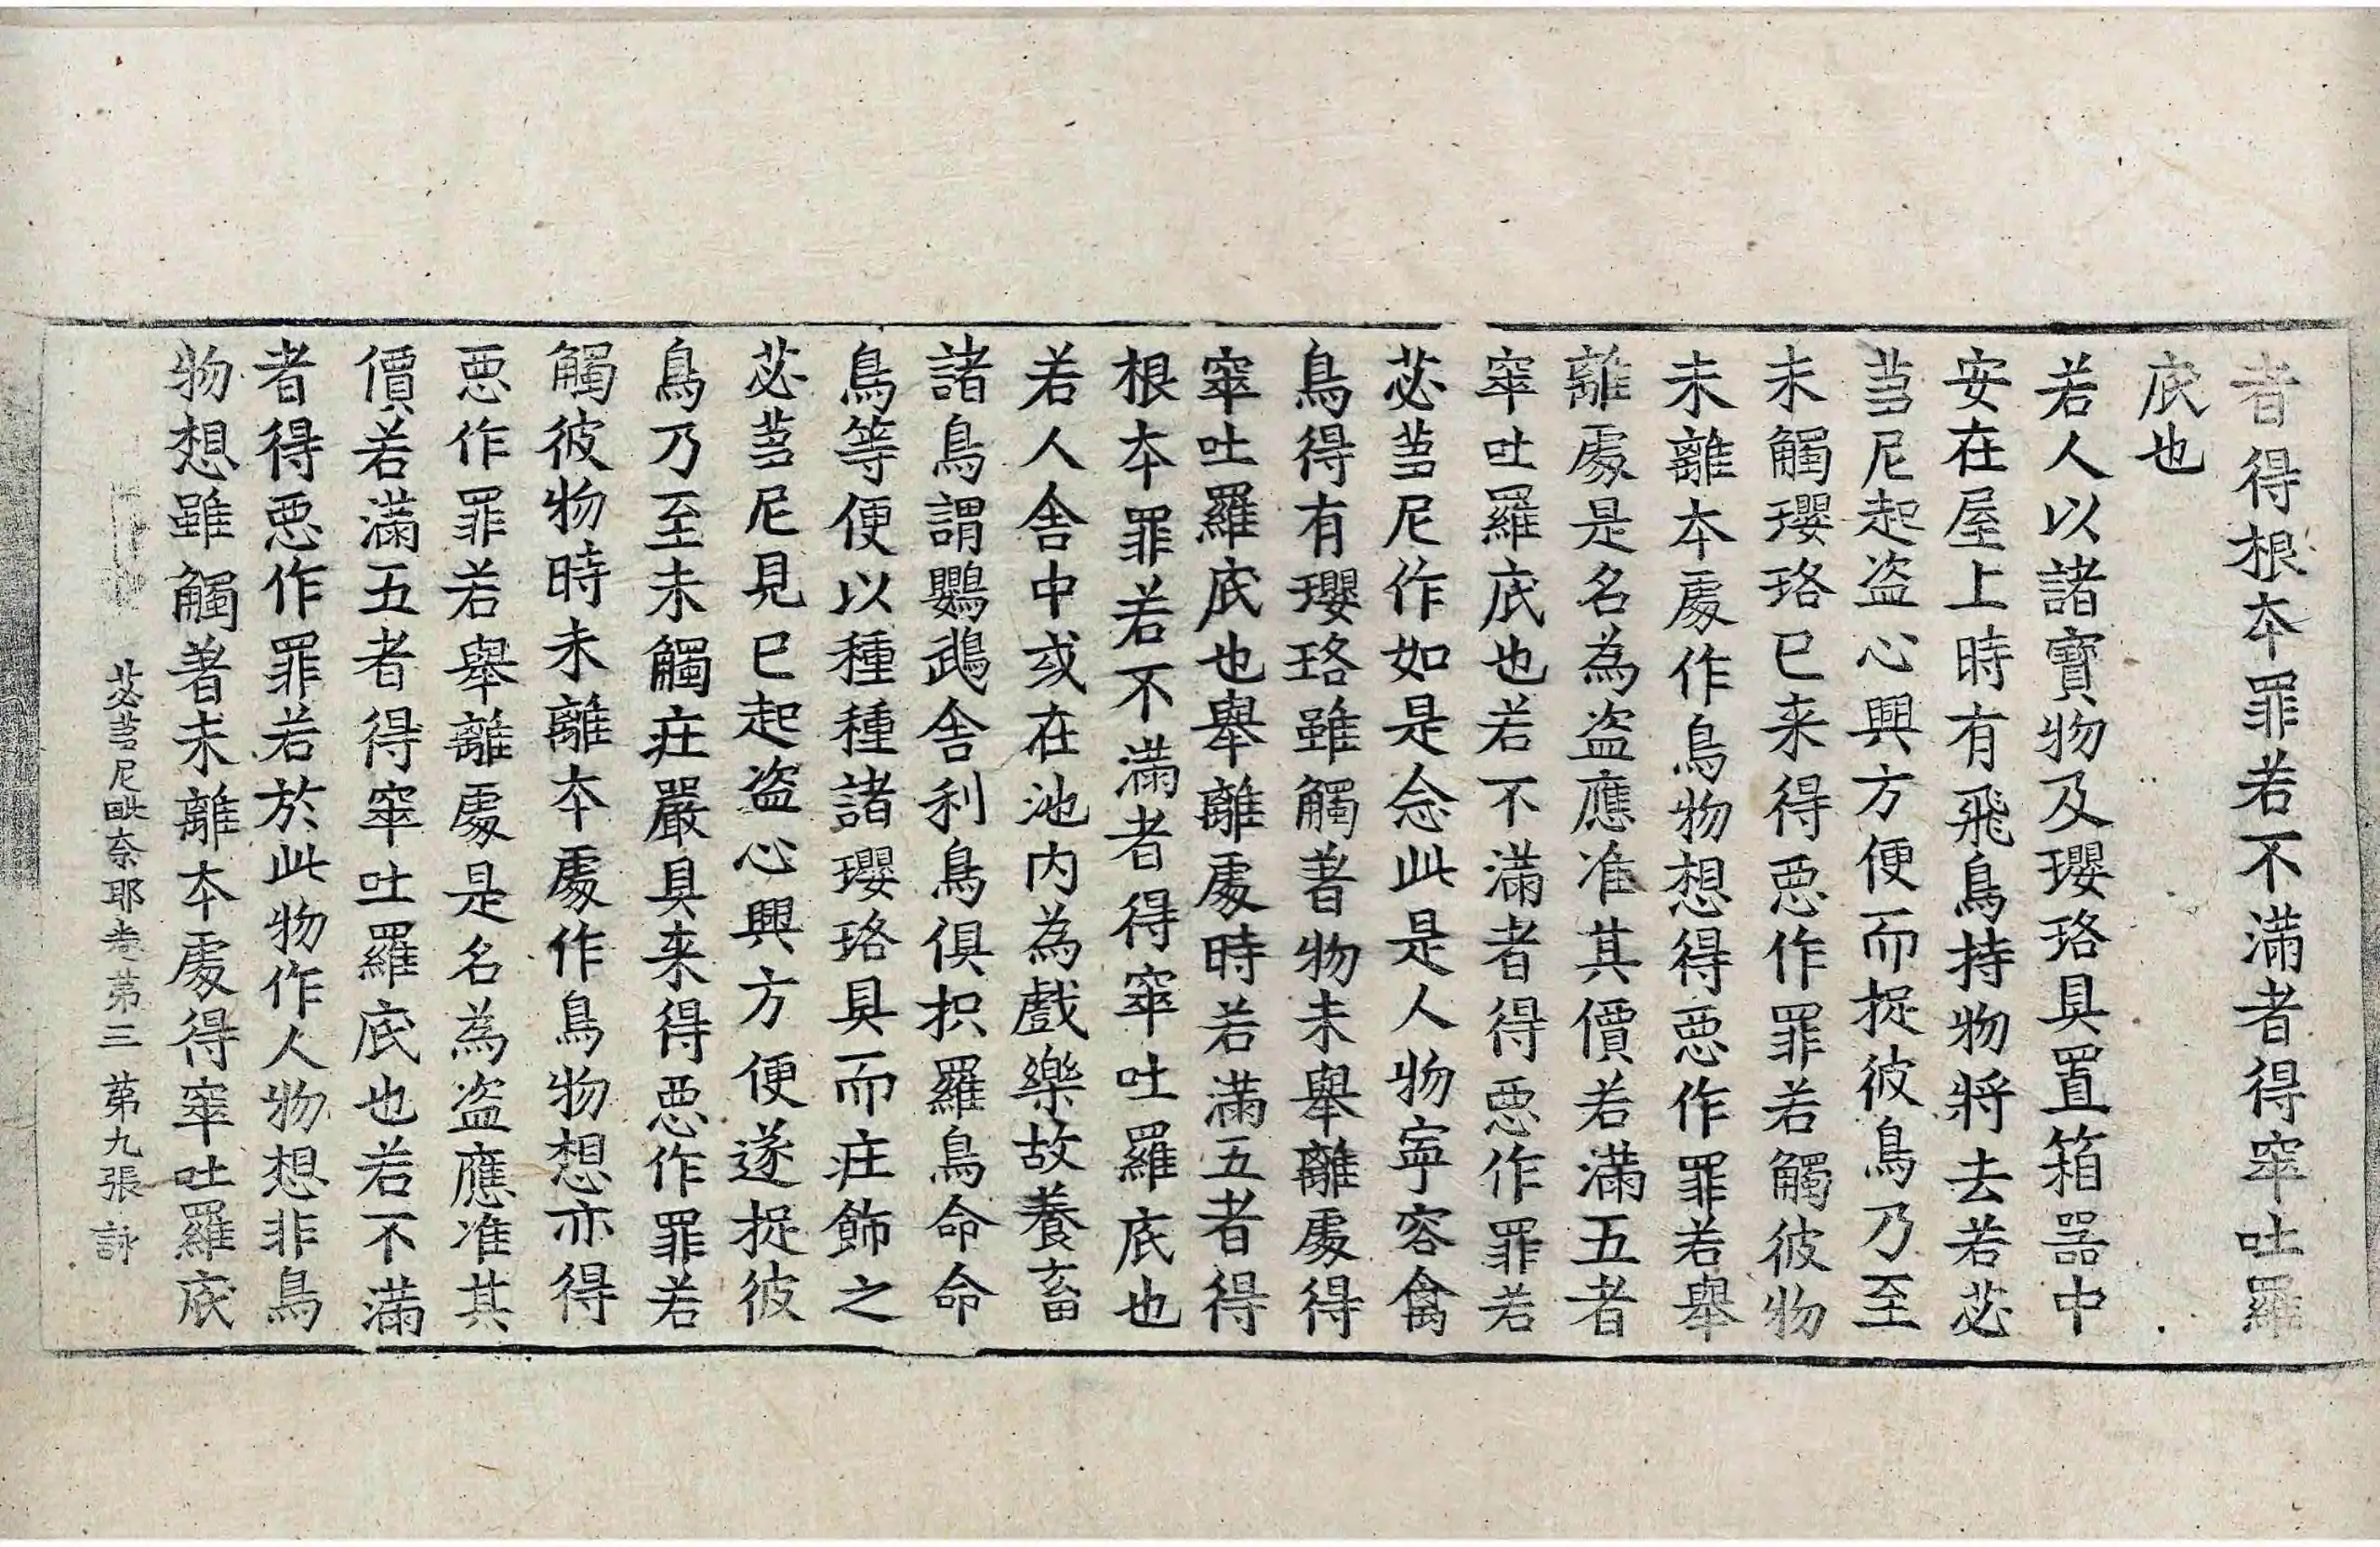 者得根本罪若不滿者得窣吐羅
底也
若人以諸寶物及瓔珞具置箱器中
安在屋上時有飛鳥持物將去若苾
芻尼起盜心興方便而捉彼鳥乃至
未觸瓔珞已来得惡作罪若觸彼物
未離本處作鳥物想得惡作罪若舉
離處是名為盜應准其價若滿五者
窣吐羅底也若不滿者得惡作罪若
苾芻尼作如是念此是人物寧容禽
鳥得有瓔珞雖觸著物未舉離處得
窣吐羅底也舉離處時若滿五者得
根本罪若不滿者得窣吐羅底也
若人舍中或在池内為戲樂故養畜
諸鳥謂鸚鵡舍利鳥俱枳羅鳥命命
鳥等便以種種諸瓔珞具而庄飾之
苾芻尼見已起盜心興方便遂捉彼
鳥乃至未觸庄嚴具来得惡作罪若
觸彼物時未離本處作鳥物想亦得
惡作罪若舉離處是名為盜應准其
價若滿五者得窣吐羅底也若不滿
者得惡作罪若於此物作人物想非鳥
物想雖觸著未離本處得窣吐羅底
苾芻尼毗奈耶卷第三 第九張 詠